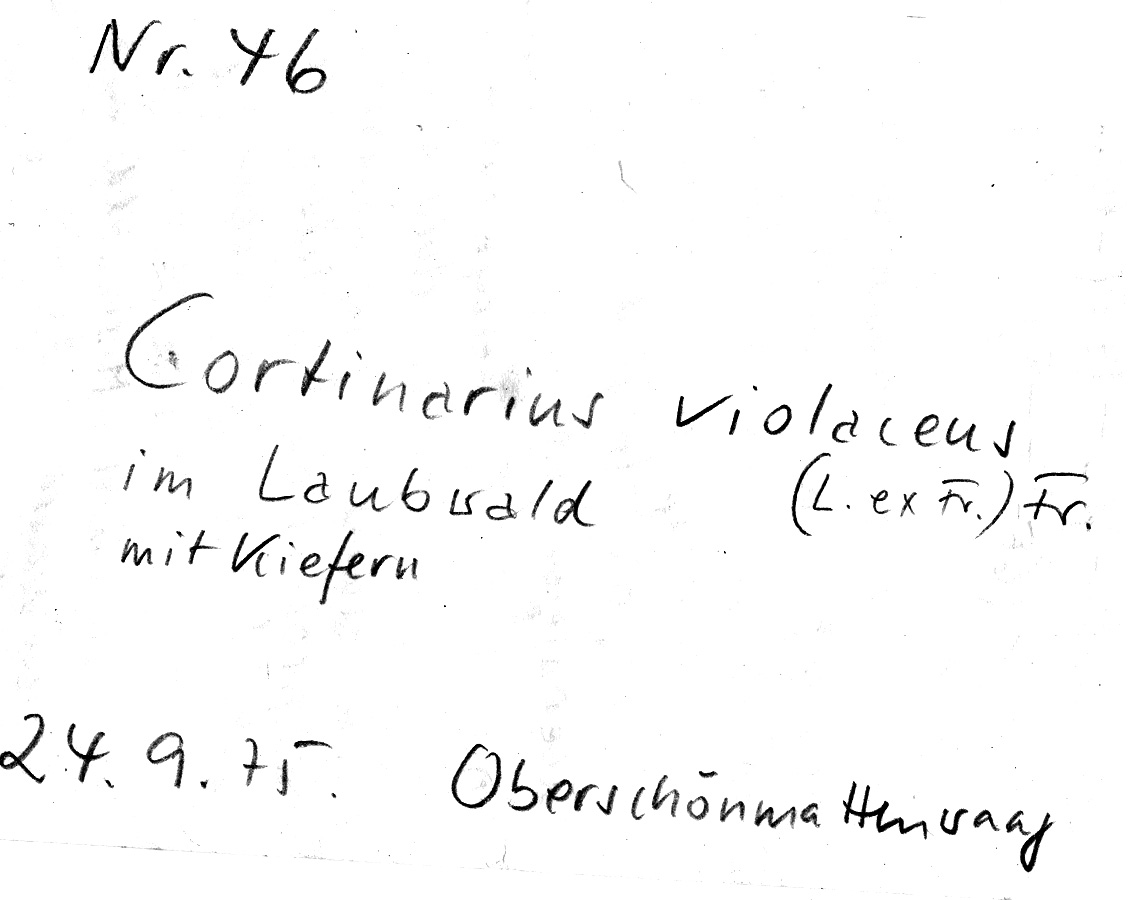 Nr. 46
Cortinarius violaceus
im Laubwald (L. ex Fr.) Fr.
mit Kiefern
24. 9. 75. Oberschönmattenwaag